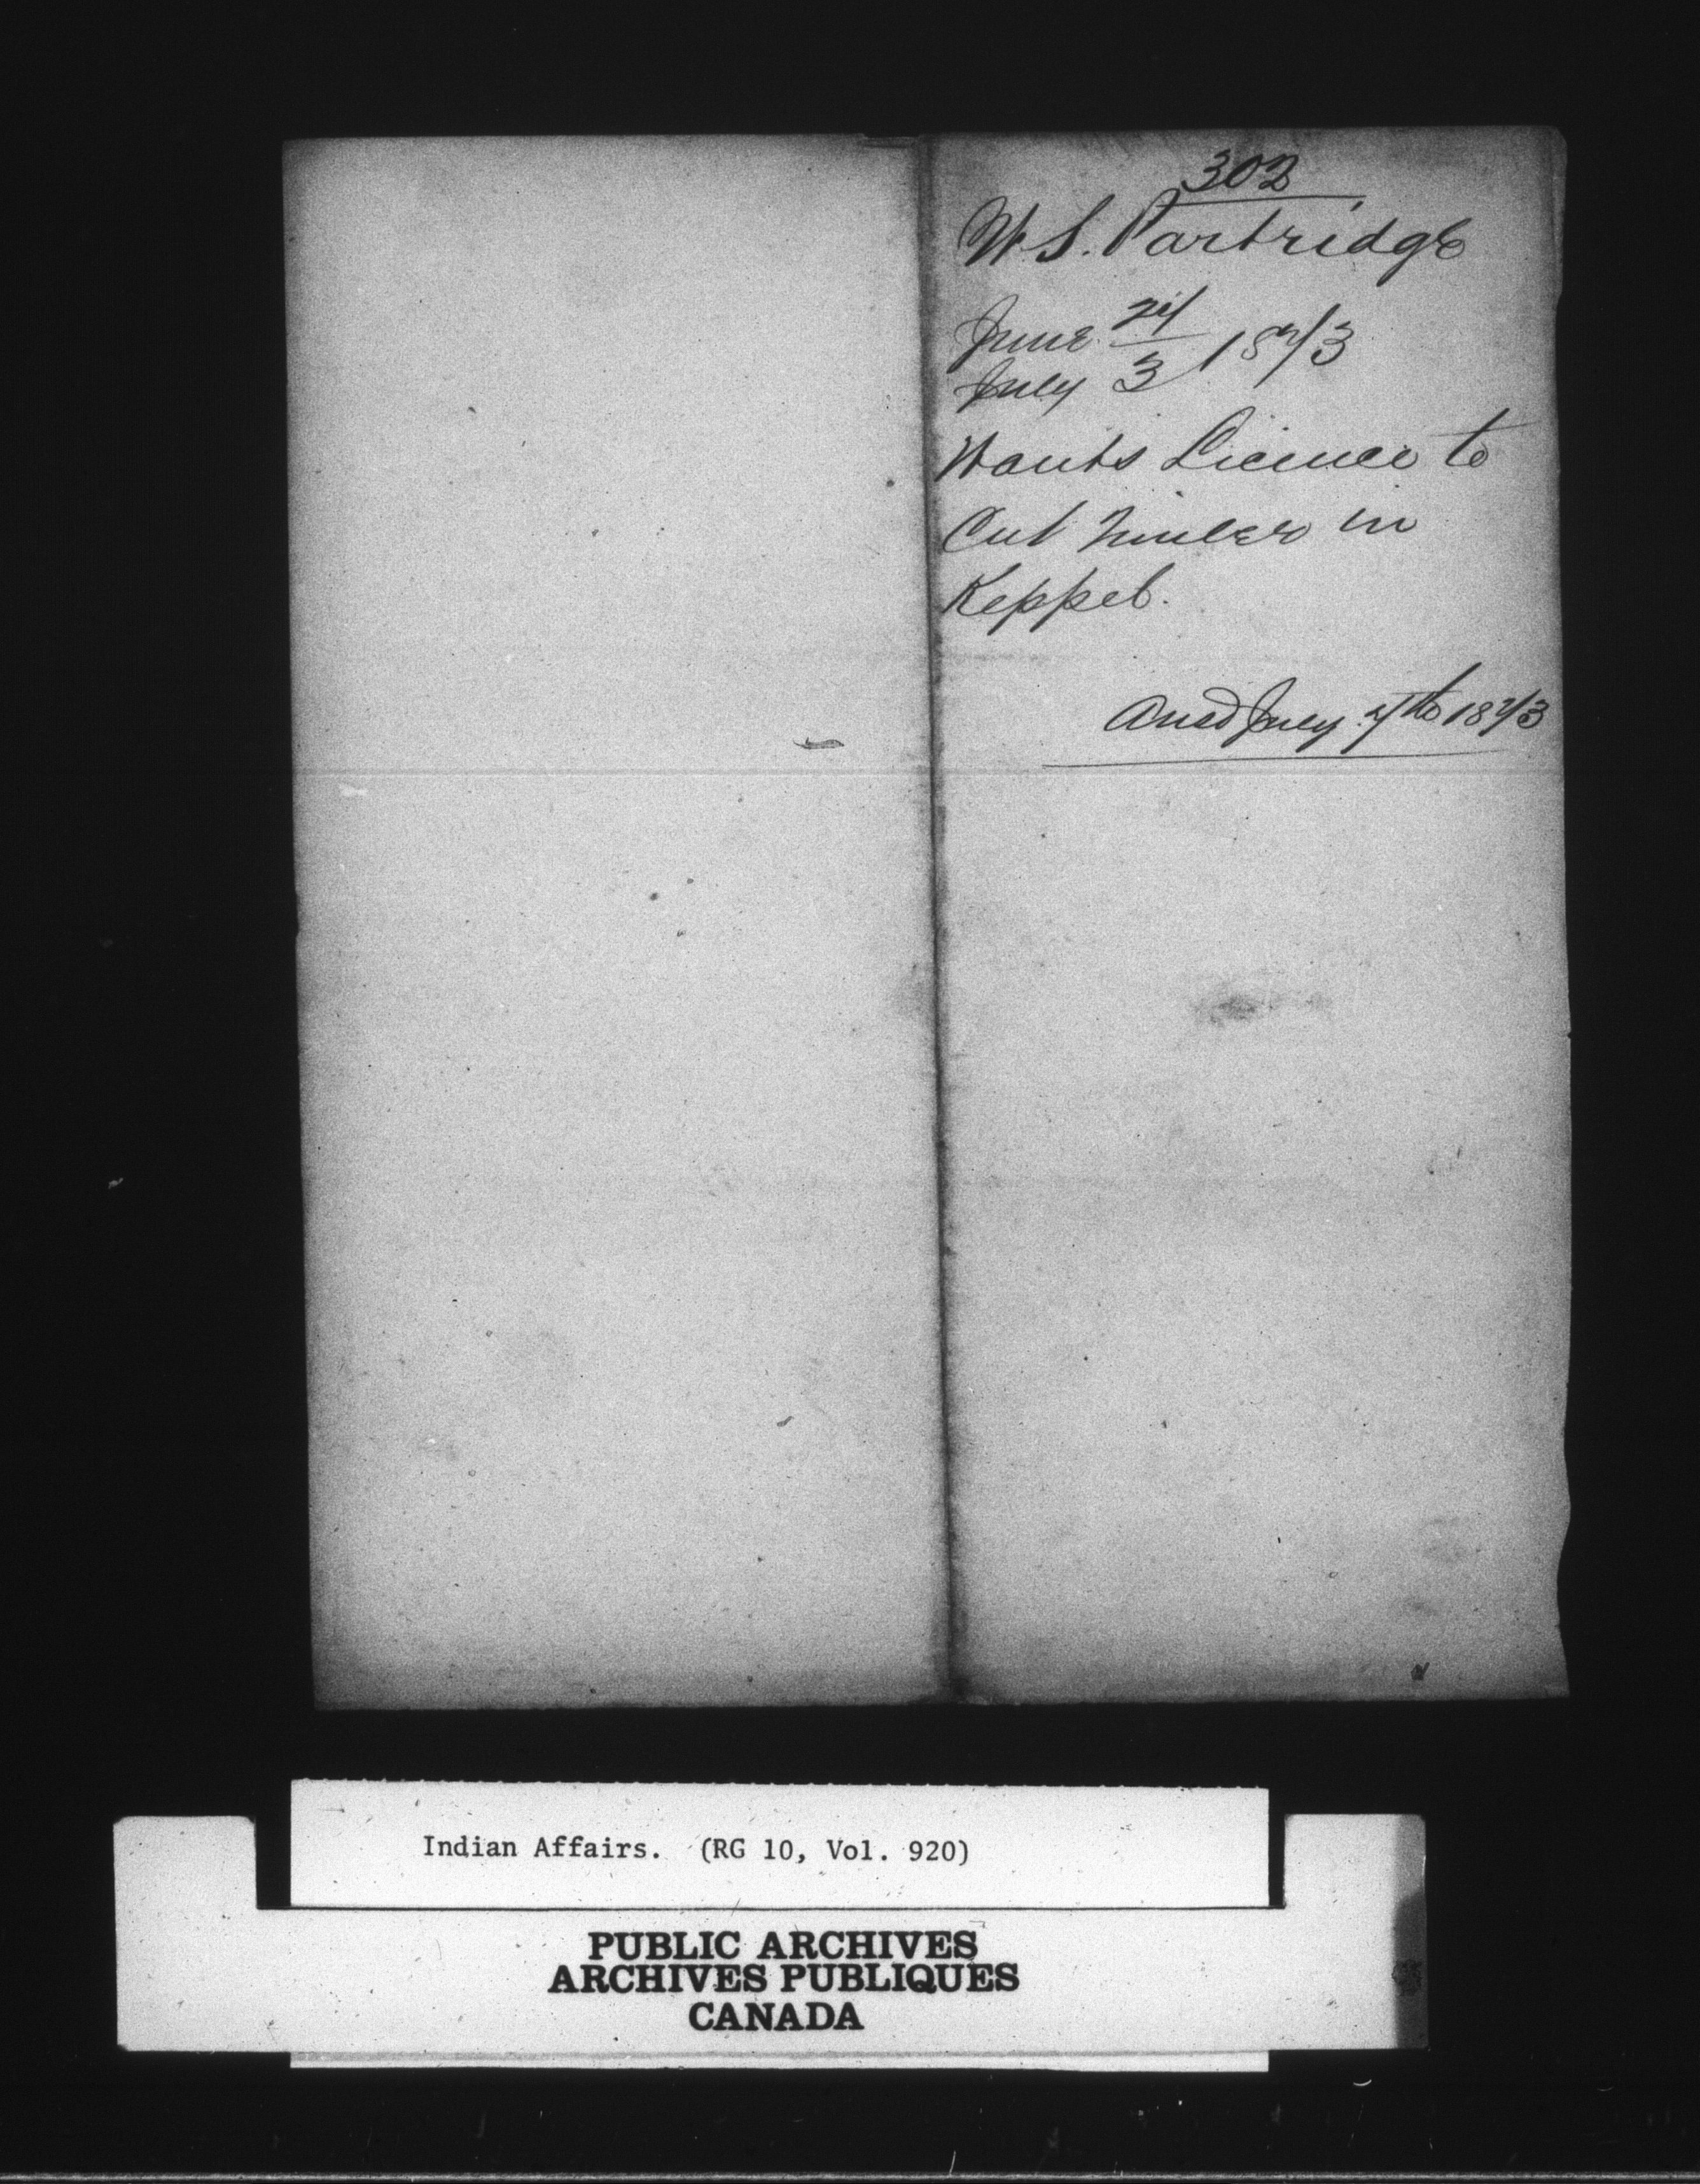 302
W. S. Partridge
June 24
July 3 1873
Wants Licence to
Cut Timber in
Keppel.
Ansd July 7th 1873
Indian Affairs. (RG 10, Vol. 920)
PUBLIC ARCHIVES
ARCHIVES PUBLIQUES
CANADA